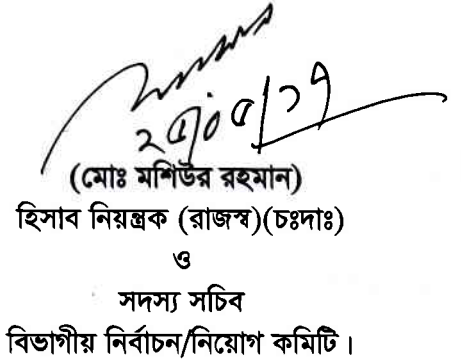 (মোঃ মশিউর রহমান)
হিসাব নিয়ন্ত্রক (রাজস্ব)(চঃদাঃ)
ও
সদস্য সচিব
বিভাগীয় নির্বাচন/নিয়োগ কমিটি।